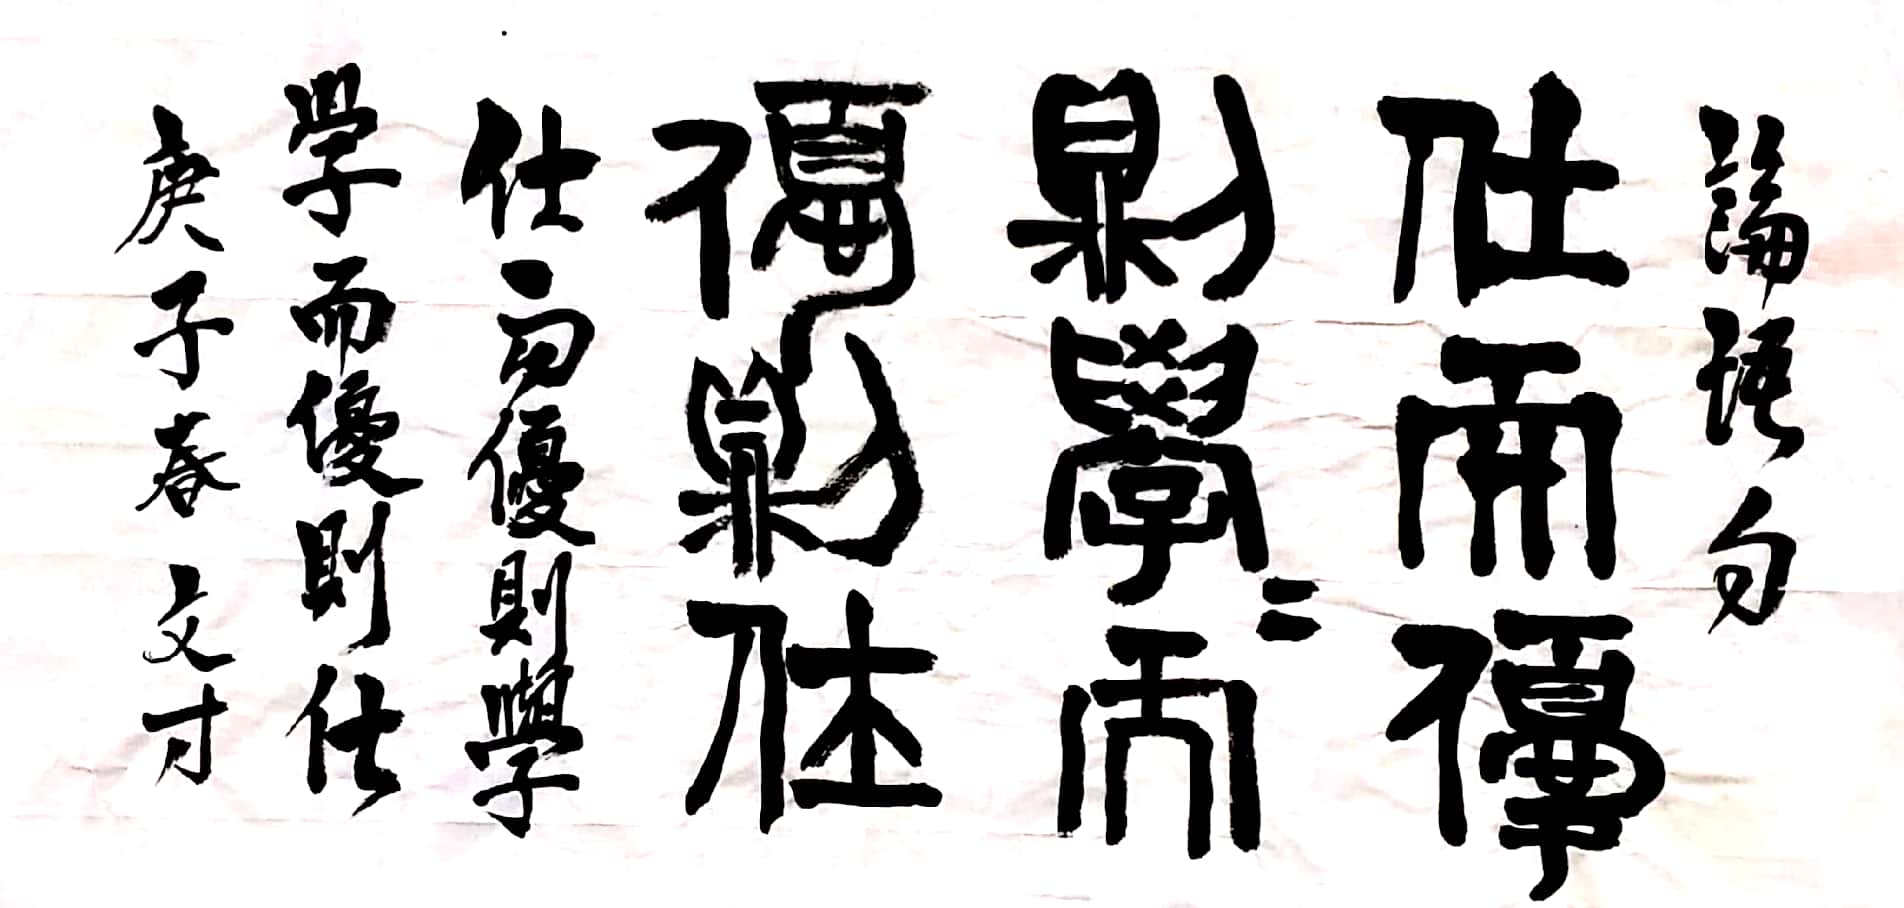 論語句
仕而優
則學〻而
優則仕
仕而優則學
學而優則仕
庚子春文才